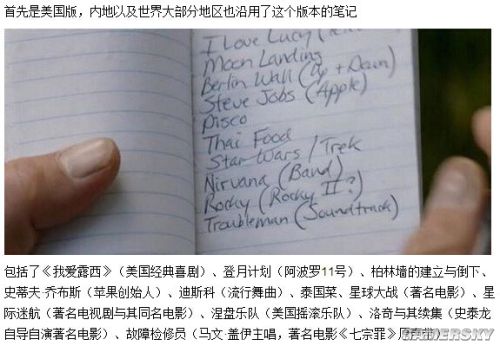 首先是美国版，内地以及世界大部分地区也沿用了这个版本的笔记
I Love Lucy
Moon Landing
Berlin Wall (Up + Down)
Steve Jobs (Apple)
Disco
Thai Food
Star Wars / Trek
Nirvana (Band)
Rocky (Rocky II?)
Troubleman (Soundtrack)
包括了《我爱露西》（美国经典喜剧）、登月计划（阿波罗11号）、柏林墙的建立与倒下、
史蒂夫·乔布斯（苹果创始人）、迪斯科（流行舞曲）、泰国菜、星球大战（著名电影）、星
际迷航（著名电视剧与其同名电影）、涅盘乐队（美国摇滚乐队）、洛奇与其续集（史泰龙
自导自演著名电影）、故障检修员（马文·盖伊主唱，著名电影《七宗罪》原
GAMERSKY